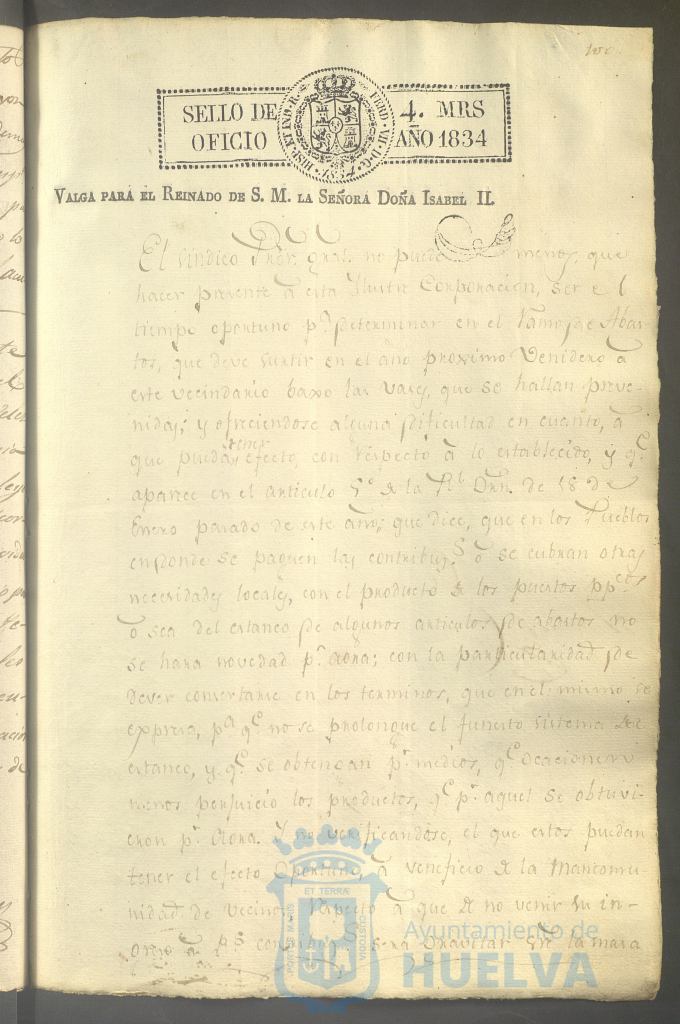 100
SELLO DE OFICIO
HISP. ET IND. R. FERD. VII. D. G.
4. MRS AÑO 1834
VALGA PARA EL REINADO DE S. M. LA SEÑORA DOÑA ISABEL II.
El Sindico Pror. gral. no puede menos, que
hacer presente á esta Ylustre Corporacion, ser el
tiempo oportuno pa. determinar en el Ramo de Abas-
tos, que deve surtir en el año proximo Venidero á
este vecindario baxo las vases, que se hallan preve-
nidas; y ofreciendose alguna dificultad en cuento, á
que puedan tener efecto, con respecto á lo establecido, y qe.
aparece en el articulo 5º de la Rl. Orn. de 18 de
Enero pasado de este año; que dice, que en los Pueblos
en donde se paguen las contribus. ó se cubran otras
necesidades locales, con el producto de los puestos ppcos
ó sea del estanco de algunos articulos de abastos no
se hara novedad pr. aora; con la particularidad de
dever concertarse en los terminos, que en el mismo se
expresa, pa. qe. no se prolongue el funesto sistema de
estanco, y qe. se obtengan pr. medios, qe. ocacionen
menos perjuicio los productos, qe. pr. aquel se obtuvi-
eron pr. aora. Y no verificandose, el que estos puedan
tener el efecto oportuno, á veneficio de la Mancomu-
nidad de Vecinos, respecto á que de no venir su in-
greso á Rs. contribus. será gravitar sre. la masa
PORTUS MARIS ET TERRAE CUSTODIA
Ayuntamiento de
HUELVA